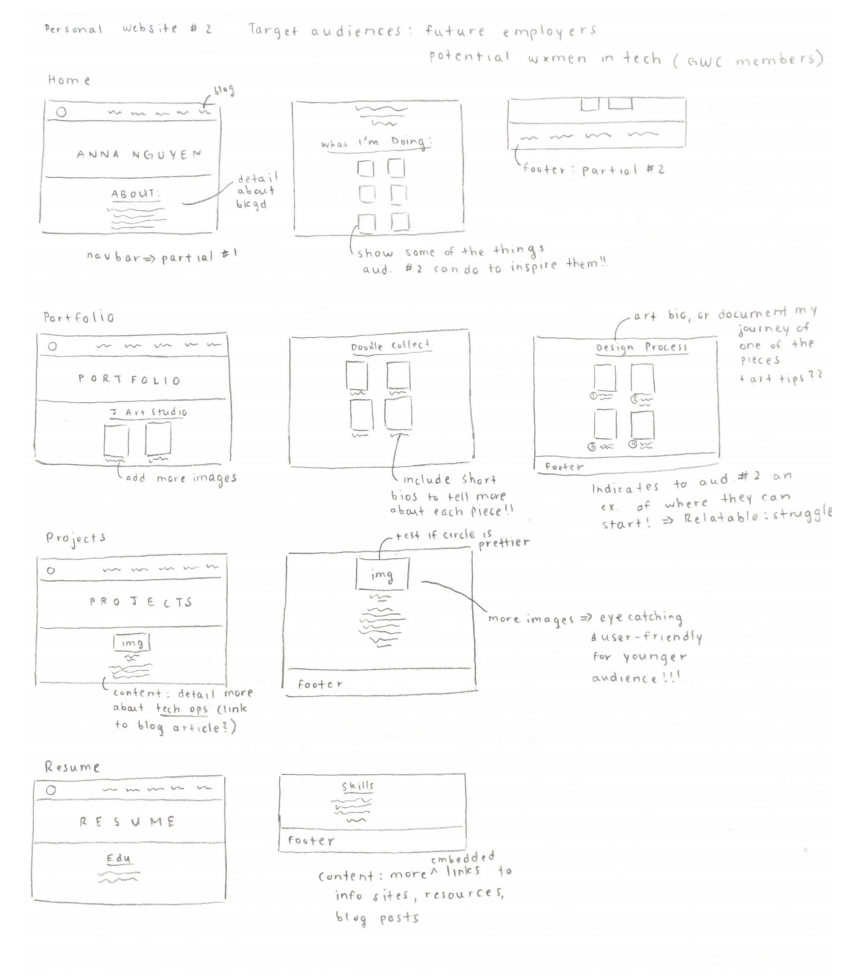 Personal website # 2 Target audiences: future employers
potential wxmen in tech (GWC members)
Home
blog
ANNA NGUYEN
ABOUT:
detail
about
bkgd
navbar => partial #1
What I'm Doing:
show some of the things
aud. #2 can do to inspire them!!
footer: partial #2
Portfolio
PORTFOLIO
J Art Studio
add more images
Doodle Collect.
include short
bios to tell more
about each piece!!
art bio, or document my
journey of
one of the
pieces
+ art tips??
Design Process
①
②
③
④
Footer
Indicates to aud. #2 an
ex. of where they can
start! => Relatable: struggle
Projects
PROJECTS
img
content: detail more
about tech ops (link
to blog article?)
test if circle is
prettier
img
footer
more images => eyecatching
& user-friendly
for younger
audience!!!
Resume
RESUME
Edu
Skills
footer
embedded
content: more ^ links to
info sites, resources,
blog posts